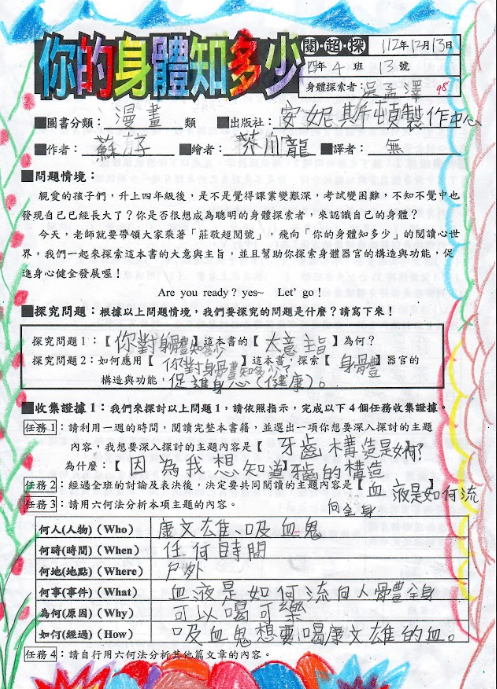 你的身體知多少 閱起探 112年12月13日
四年4班 13號
身體探索者：吳 澤 98
■圖書分類：漫畫類 ■出版社：安妮斯頓製作中心
■作者： ■繪者：芥川龍 ■譯者：無
■問題情境：
親愛的孩子們，升上四年級後，是不是覺得課業變難深，考試變困難，不知不覺中也
發現自己已經長大了？你是否很想成為聰明的身體探索者，來認識自己的身體？
今天，老師就要帶領大家乘著「莊敬超閱號」，飛向「你的身體知多少」的閱讀心世
界，我們一起來探索這本書的大意與主旨，並且幫助你探索身體器官的構造與功能，促
進身心健全發展喔！
Are you ready？yes~ Let' go！
■探究問題：根據以上問題情境，我們要探究的問題是什麼？請寫下來！
探究問題1：【你對身體知多少】這本書的【大意主旨】為何？
探究問題2：如何應用【你對身體知多少】這本書，探索【身體】器官的
構造與功能，促進身心(健康)。
■收集證據1：我們來探討以上問題1，請依照指示，完成以下4個任務收集證據。
任務1：請利用一週的時間，閱讀完整本書籍，並選出一項你想要深入探討的主題
內容，我想要深入探討的主題內容是【牙齒構造是如何?
為什麼：【因為我想知道牙齒的構造
任務2：經過全班的討論及表決後，決定要共同閱讀的主題內容是【血液是如何流
向全身
任務3：請用六何法分析本項主題的內容。
何人(人物)(Who) 康文雄、吸血鬼
何時(時間)(When) 任何時間
何地(地點)(Where) 戶外
何事(事件)(What) 血液是如何流向人體全身
為何(原因)(Why) 可以喝可樂
如何(經過)(How) 吸血鬼想要喝康文雄的血。
任務4：請自行用六何法分析其他篇文章的內容。